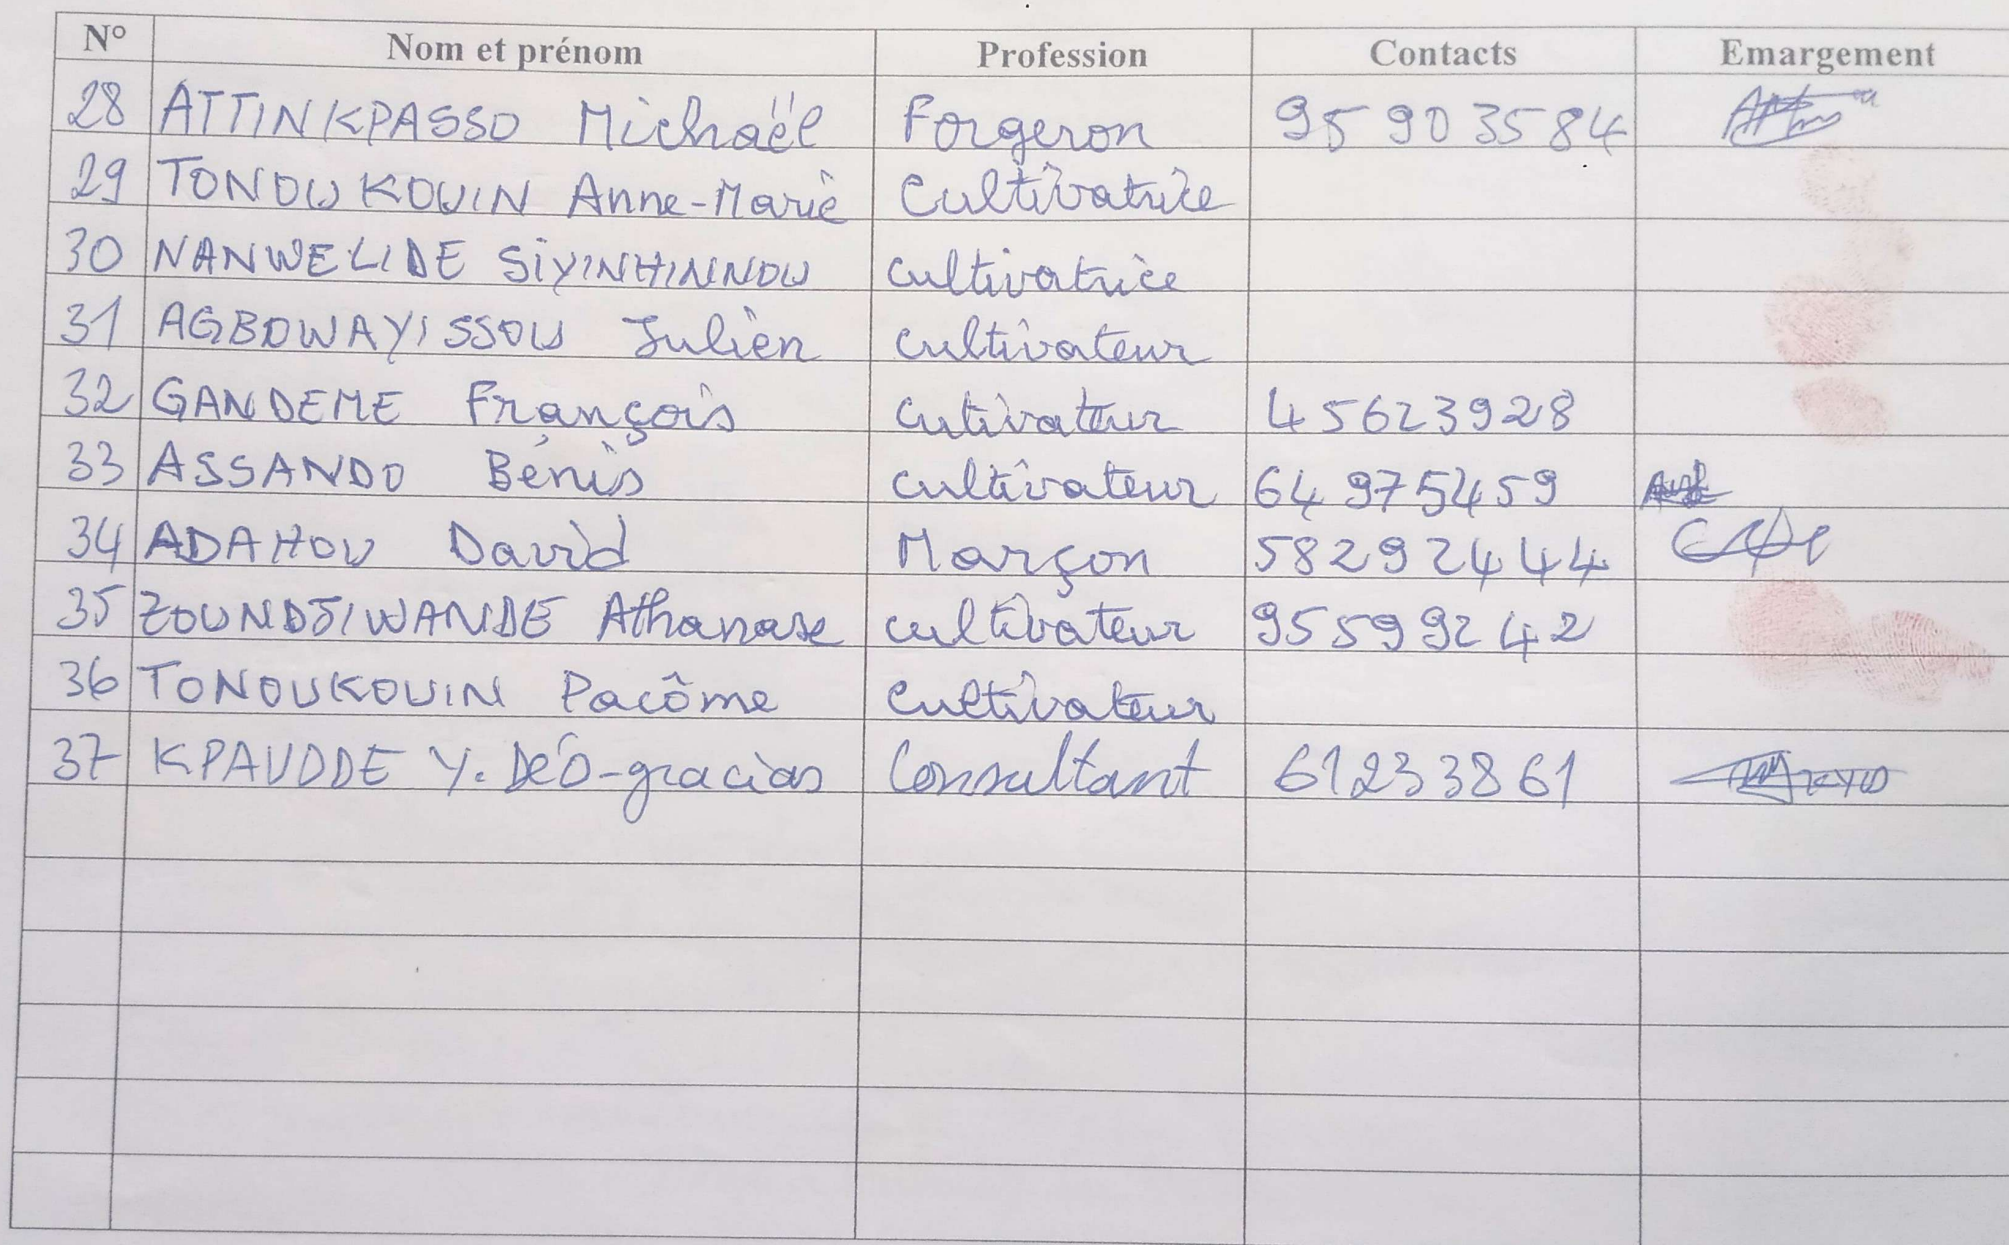 N° Nom et prénom Profession Contacts Emargement
28 ATTINKPASSO Michaël Forgeron 95 90 35 84
29 TONOUKOUIN Anne-Marie Cultivatrice
30 NANWELIDE SiYINHINNOU cultivatrice
31 AGBOWAYISSOU Julien cultivateur
32 GANDEME François cutivateur 45623928
33 ASSANDO Bénis cultivateur 64975459
34 ADAHOU David Marçon 58292444
35 ZOUNDJIWANDE Athanase cultivateur 95599242
36 TONOUKOUIN Pacôme cultivateur
37 KPAVODE Y. Déo-gracias Consultant 61233861